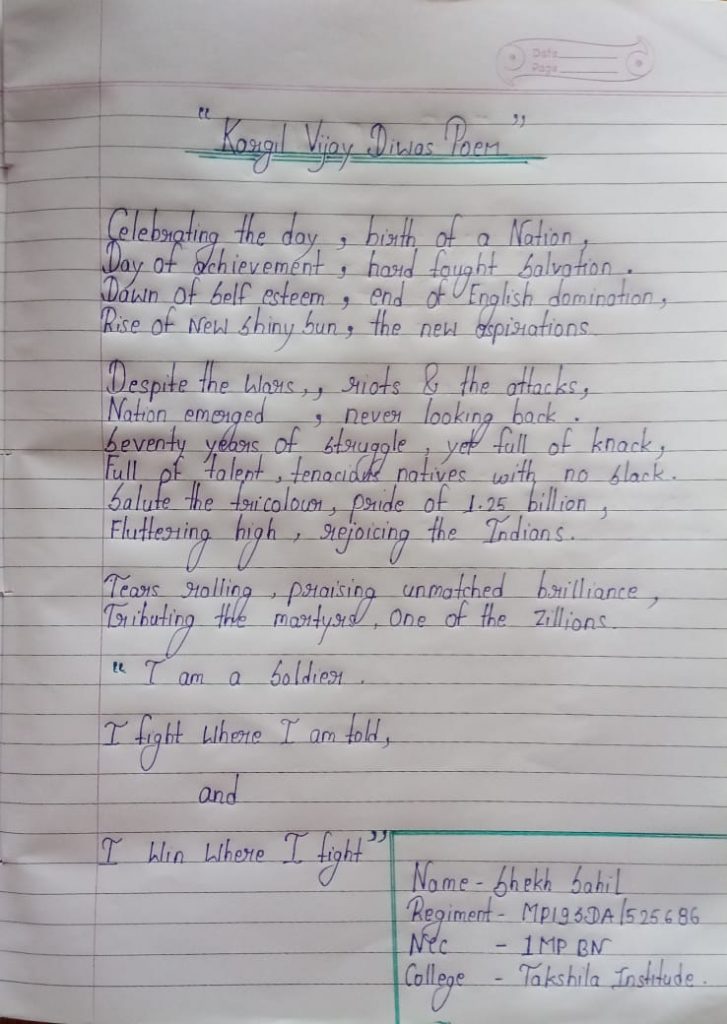 Date
Page
" Kargil Vijay Diwas Poem "
Celebrating the day , birth of a Nation ,
Day of achievement , hard fought Salvation .
Dawn of Self esteem , end of English domination ,
Rise of New Shiny Sun , the new aspirations
Despite the Wars , , riots & the attacks ,
Nation emerged , never looking back .
Seventy years of Struggle , yet full of knack ,
Full of talent , tenacious natives with no Slack .
Salute the tricolour , pride of 1.25 billion ,
Fluttering high , rejoicing the Indians .
Tears rolling , praising unmatched brilliance ,
Tributing the martyrs , One of the Zillions .
" I am a Soldier .
I fight Where I am told ,
and
I Win Where I fight "
Name - Shekh Sahil
Regiment - MP19SDA/525686
Ncc - 1 MP BN
College - Takshila Institude .